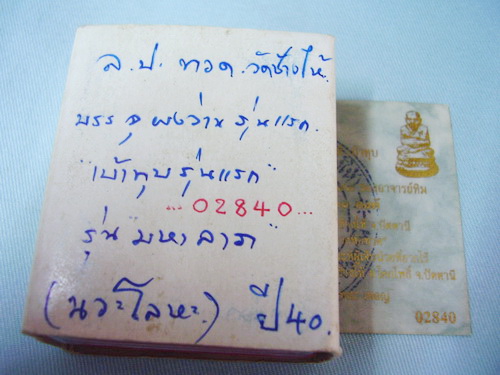 ล.ป. ทวด.วัดช้างให้.
บรรจุผงว่านรุ่นแรก.
"เบ้าทุบรุ่นแรก"
...02840...
รุ่น "มหาลาภ"
(นวะโลหะ.) ปี 40.
อาจารย์ทิม
ปัตตานี
จ.ปัตตานี
02840